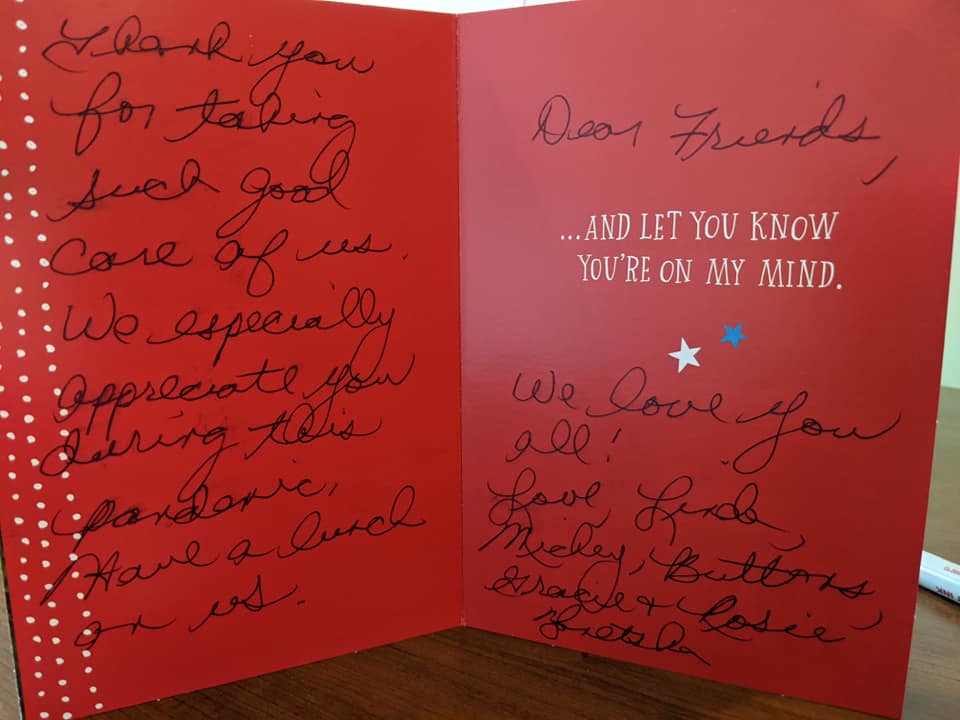 Thank you
for taking
such good
care of us.
We especially
appreciate you
during this
pandemic,
Have a lunch
on us.
Dear Friends,
...AND LET YOU KNOW
YOU'RE ON MY MIND.
We love you
all!
Love, Linda,
Mickey, Buttons
Gracie & Rosie